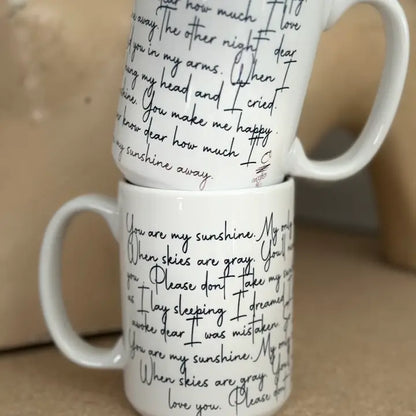 how much I love
away. The other night dear
you in my arms. When I
my head and I cried.
You make me happy
know dear how much I
my sunshine away.
You are my sunshine. My only
When skies are gray. You'll
you. Please don't take my sun
as I lay sleeping I dreamed
awoke dear I was mistaken.
You are my sunshine. My only
When skies are gray. You
love you. Please don't